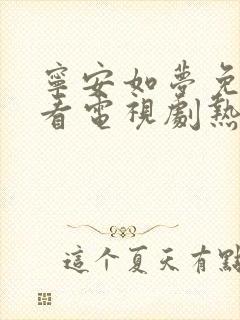 寧安如夢免
看電視劇熱
這个夏天有點